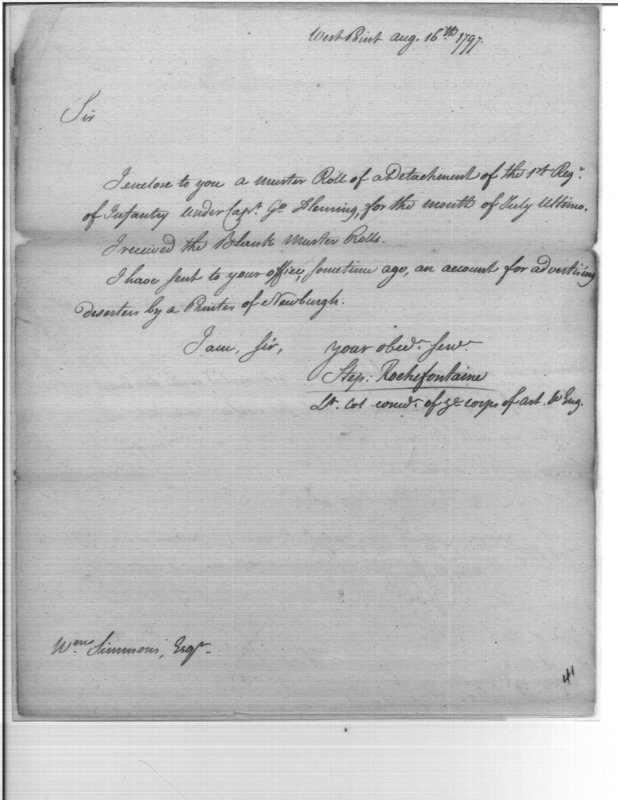 West Point Aug. 16th 1797.
Sir
I enclose to you a muster Roll of a Detachment of the 1st Regt.
of Infantry under Capt. Go. Fleming, for the month of July Ultimo.
I received the Blank Muster Rolls.
I have sent to your office, sometime ago, an account for advertising
deserters by a Printer of Newburgh.
I am, Sir, your obedt. Servt.
Step. Rochefontaine
Lt. Col comdt. of ye corps of art. & Eng.
Wm Simmons, Esqr.
41